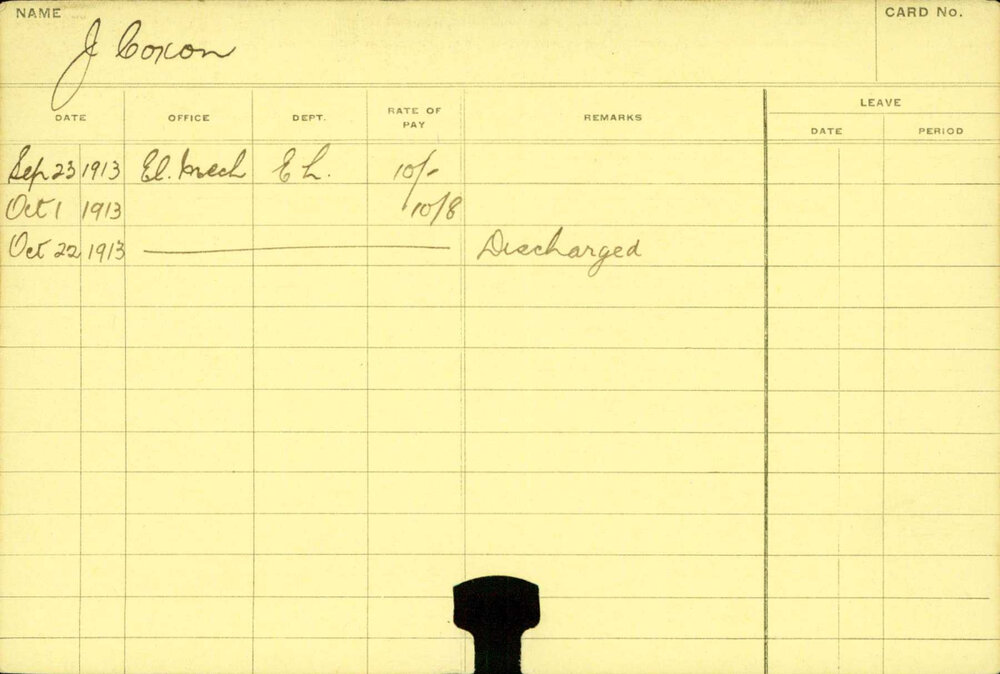 NAME CARD No.
J Coxon
LEAVE
DATE OFFICE DEPT. RATE OF PAY REMARKS DATE PERIOD
Sep 23 1913 El. Mech E L. 10/-
Oct 1 1913 10/8
Oct 22 1913 Discharged